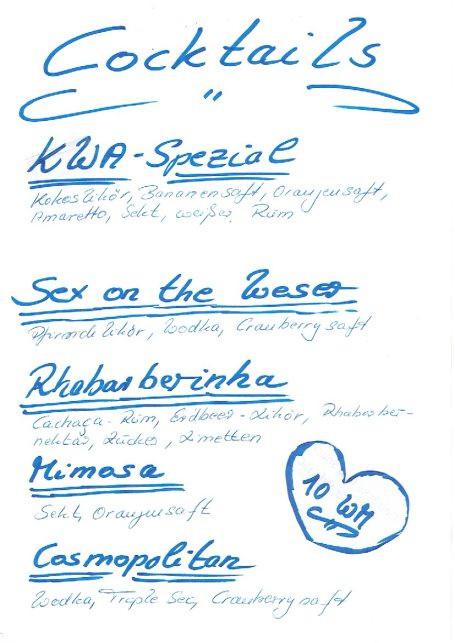 Cocktails
KWA-Spezial
Kokoslikör, Bananensaft, Orangensaft,
Amaretto, Sekt, weißer Rum
Sex on the Weser
Pfirsichlikör, Wodka, Cranberrysaft
Rhabarberinha
Cachaça-Rum, Erdbeer-Likör, Rhabarber-
nektar, Zucker, Limetten
Mimosa
Sekt, Orangensaft
10 WM
Cosmopolitan
Wodka, Triple Sec, Cranberrysaft